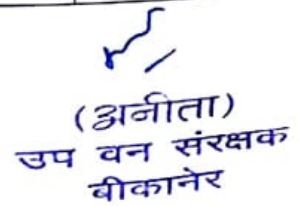 (अनीता)
उप वन संरक्षक
बीकानेर